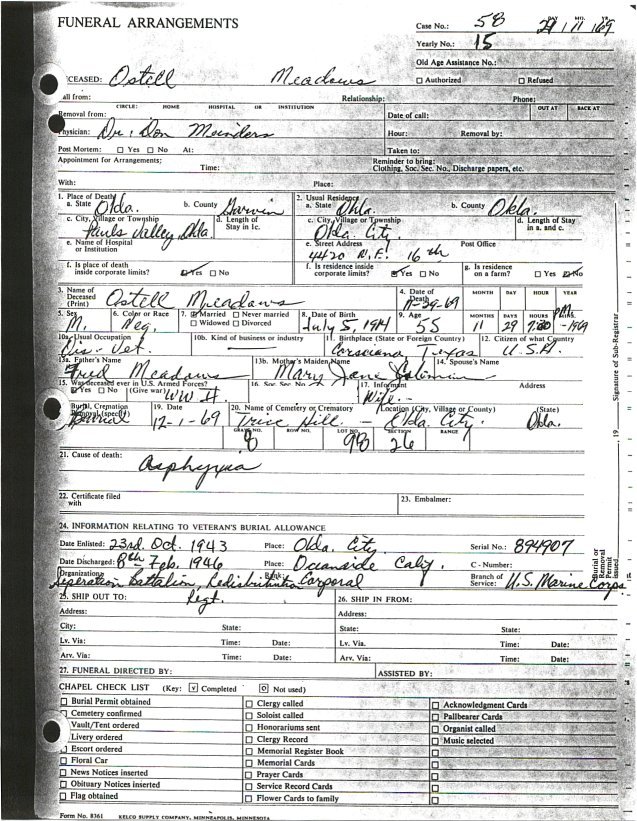 FUNERAL ARRANGEMENTS
Case No.: 58 DAY MO. YR. 29 / 11 / 69
Yearly No.: 15
Old Age Assistance No.:
CEASED: Ostell Meadows ☐ Authorized ☐ Refused
all from: Relationship: Phone:
CIRCLE: HOME HOSPITAL OR INSTITUTION OUT AT BACK AT
Removal from: Date of call:
hysician: Dr. Don Meinders Hour: Removal by:
Post Mortem: ☐ Yes ☐ No At: Taken to:
Appointment for Arrangements: Time: Reminder to bring:
Clothing, Soc. Sec. No., Discharge papers, etc.
With: Place:
1. Place of Death 2. Usual Residence
a. State Okla. b. County Garvin a. State Okla. b. County Okla.
c. City, Village or Township d. Length of Stay in 1c. c. City, Village or Township d. Length of Stay in a. and c.
Pauls Valley, Okla. Okla. City
e. Name of Hospital or Institution e. Street Address Post Office
4420 N.E. 16th
f. Is place of death inside corporate limits? ☑ Yes ☐ No f. Is residence inside corporate limits? ☑ Yes ☐ No g. Is residence on a farm? ☐ Yes ☑ No
3. Name of Deceased (Print) Ostell Meadows 4. Date of Death 11-29-69 MONTH DAY HOUR YEAR
5. Sex 6. Color or Race 7. ☑ Married ☐ Never married 8. Date of Birth 9. Age MONTHS DAYS HOURS MINS.
M. Neg. ☐ Widowed ☐ Divorced July 5, 1914 55 11 29 7:30 PM -1969
10a. Usual Occupation 10b. Kind of business or industry 11. Birthplace (State or Foreign Country) 12. Citizen of what Country
Dis. Vet. Corsicana Texas U.S.A.
13a. Father's Name 13b. Mother's Maiden Name 14. Spouse's Name
Fred Meadows Mary Jane
15. Was deceased ever in U.S. Armed Forces? 16. Soc. Sec. No. 17. Informant Address
☑ Yes ☐ No (Give war) WW II Wife -
Burial, Cremation Removal (specify) 19. Date 20. Name of Cemetery or Crematory Location (City, Village or County) (State)
Burial 12-1-69 Trice Hill - Okla City. Okla.
GRAVE NO. ROW NO. LOT NO. SECTION RANGE
8 98 26
21. Cause of death:
Asphyxia
22. Certificate filed with 23. Embalmer:
24. INFORMATION RELATING TO VETERAN'S BURIAL ALLOWANCE
Date Enlisted: 23rd Oct. 1943 Place: Okla. City Serial No.: 894907
Date Discharged: 8th Feb. 1946 Place: Oceanside Calif. C - Number:
Organization: Seperation Battalion, Redistribution Regt. Rank: Corporal Branch of Service: U.S. Marine Corps
25. SHIP OUT TO: 26. SHIP IN FROM:
Address: Address:
City: State: State: State:
Lv. Via: Time: Date: Lv. Via. Time: Date:
Arv. Via: Time: Date: Arv. Via: Time: Date:
27. FUNERAL DIRECTED BY: ASSISTED BY:
CHAPEL CHECK LIST (Key: ☑ Completed ⊡ Not used)
☐ Burial Permit obtained ☐ Clergy called ☐ Acknowledgment Cards
☐ Cemetery confirmed ☐ Soloist called ☐ Pallbearer Cards
☐ Vault/Tent ordered ☐ Honorariums sent ☐ Organist called
☐ Livery ordered ☐ Clergy Record ☐ Music selected
☐ Escort ordered ☐ Memorial Register Book ☐
☐ Floral Car ☐ Memorial Cards ☐
☐ News Notices inserted ☐ Prayer Cards ☐
☐ Obituary Notices inserted ☐ Service Record Cards ☐
☐ Flag obtained ☐ Flower Cards to family ☐
Form No. 8361 KELCO SUPPLY COMPANY, MINNEAPOLIS, MINNESOTA
Burial or Removal Permit Issued 19 Signature of Sub-Registrar